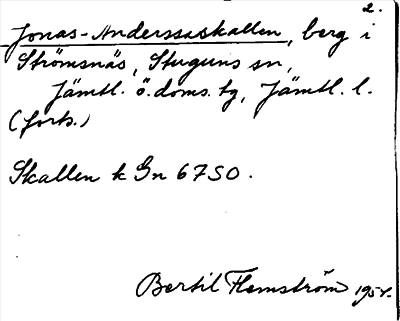 2.
Jonas-Anderssaskallen, berg i
Strömsnäs, Stuguns sn,
Jämtl. ö. doms. tg, Jämtl. l.
(forts.)
Skallen k Gn 67SO.
Bertil Flemström